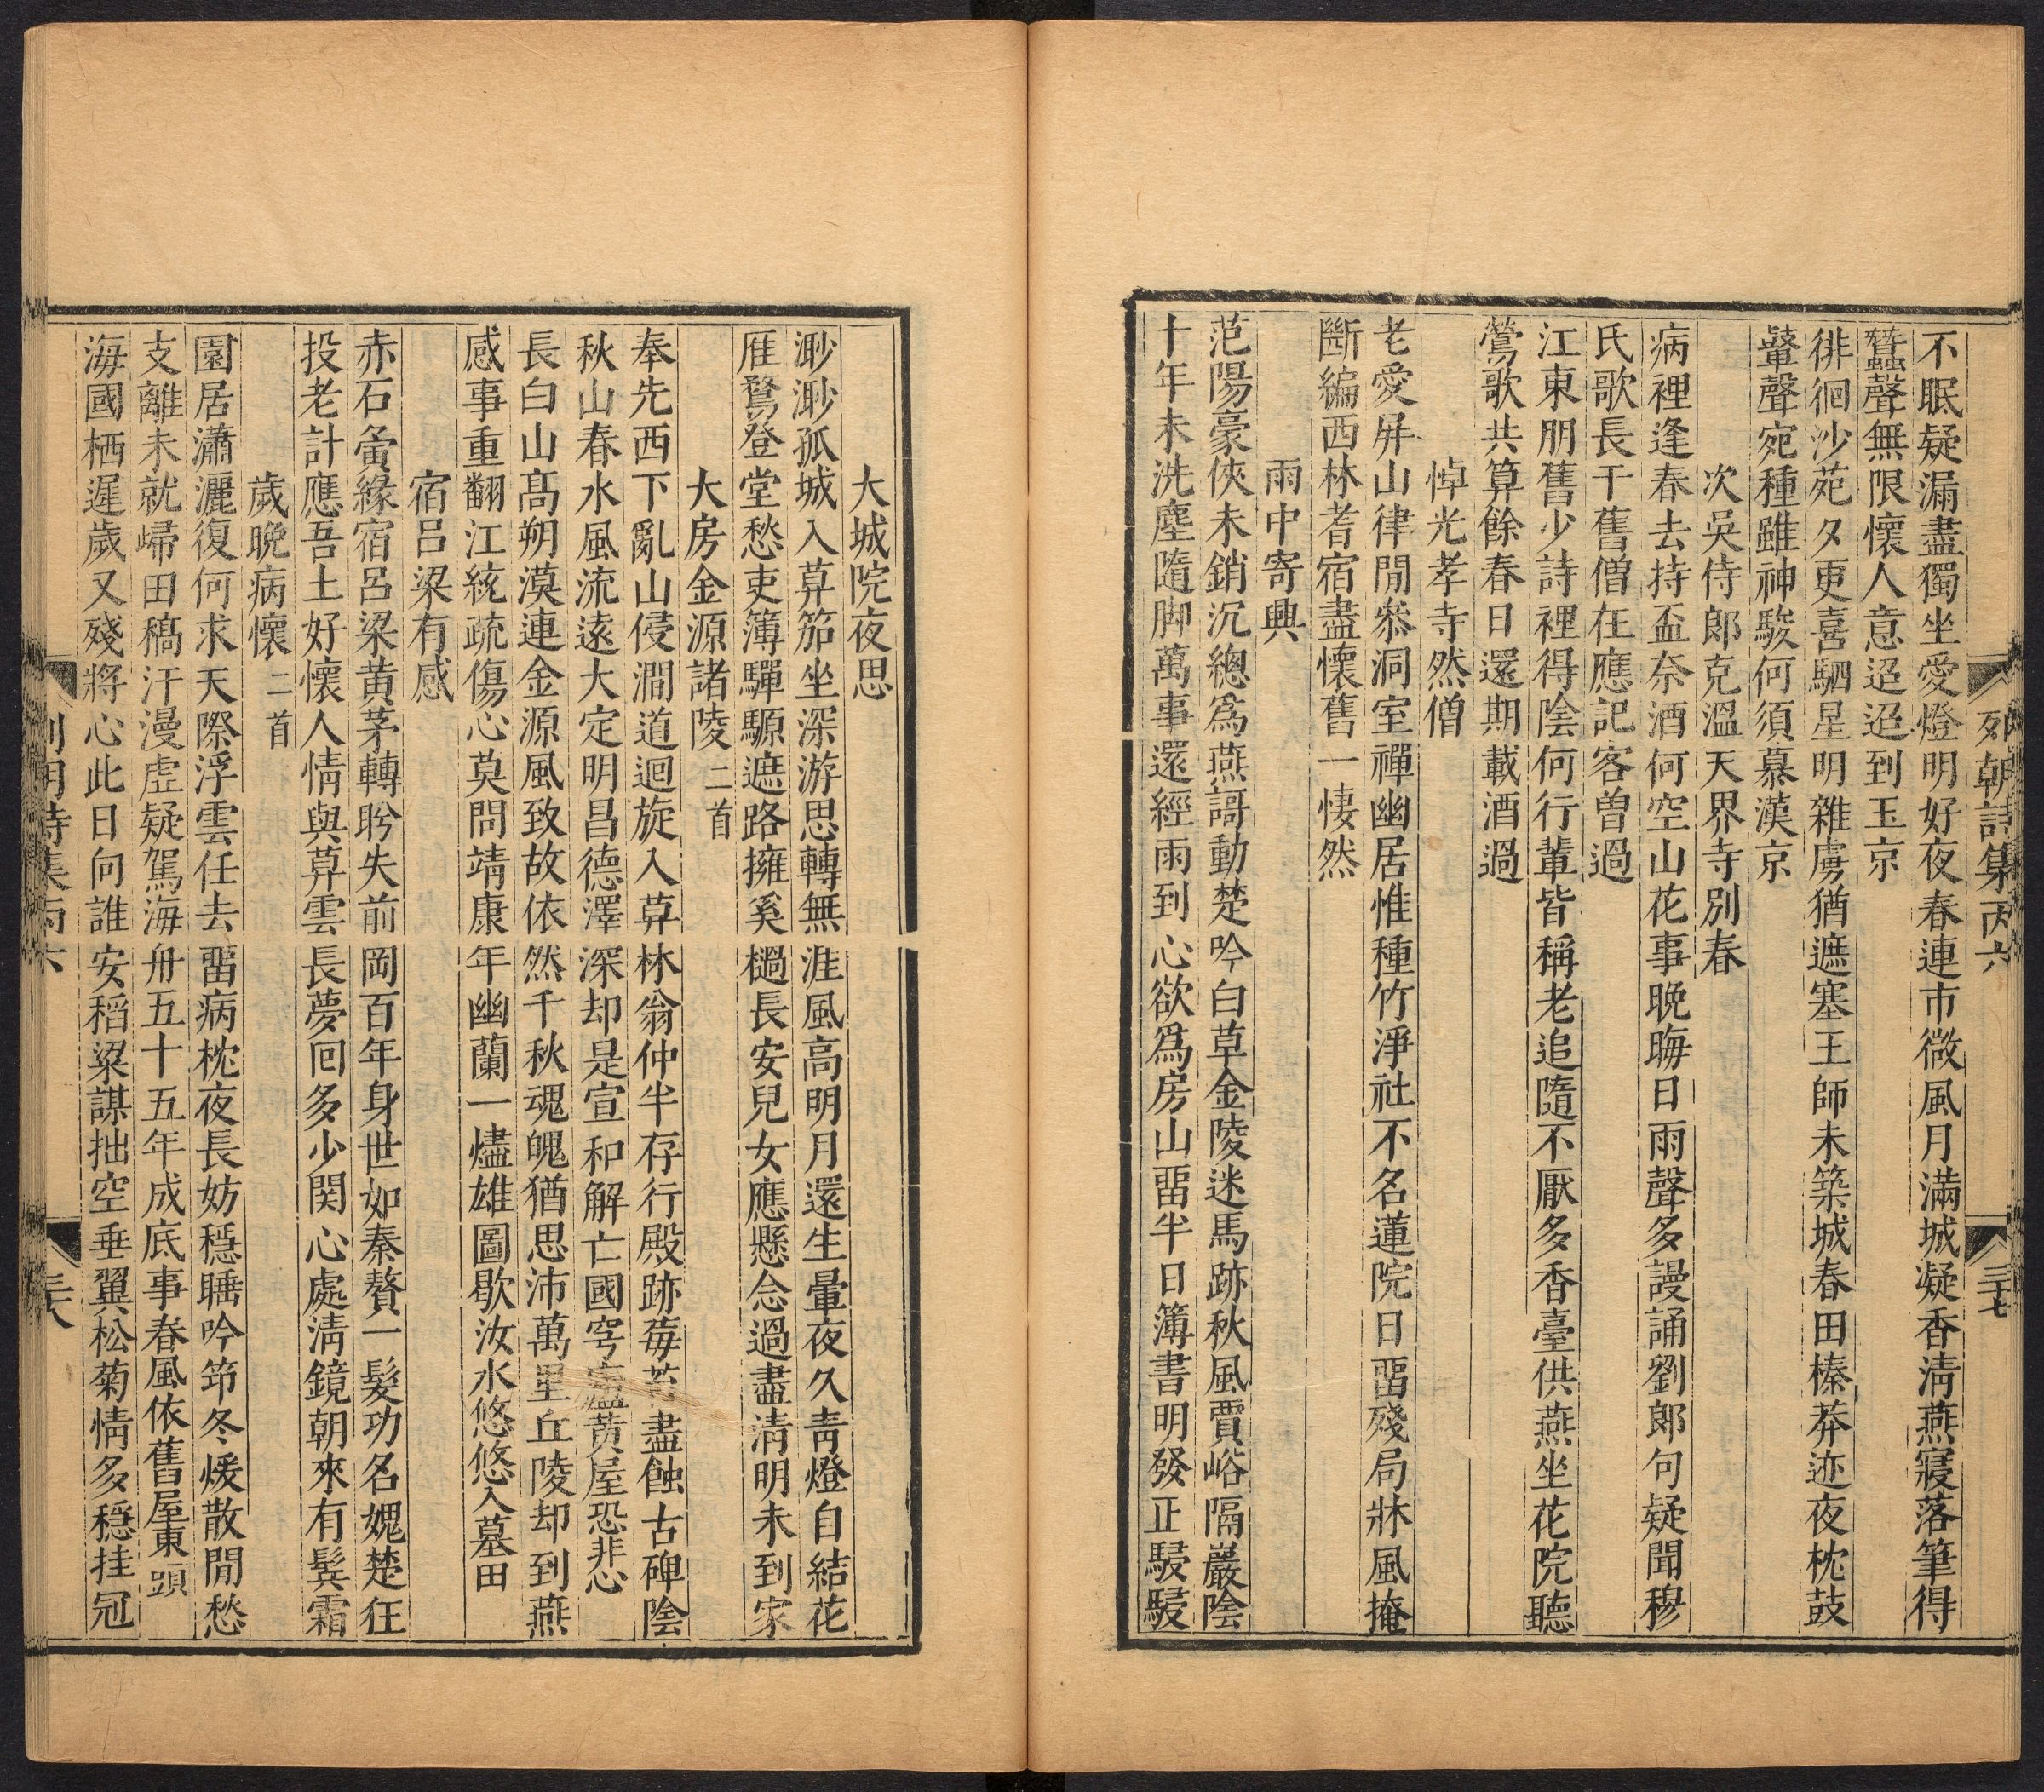 列朝詩集丙六
三十七
不眠疑漏盡獨坐愛燈明好夜春連市微風月滿城凝香清燕寢落筆得
蠶聲無限懷人意迢迢到玉京
徘徊沙苑夕更喜駟星明雜虜猶遮塞王師未築城春田榛莽迹夜枕鼓
鼙聲宛種雖神駿何須慕漢京
次吳侍郎克溫天界寺別春
病裡逢春去持盃奈酒何空山花事晚晦日雨聲多謾誦劉郎句疑聞穆
氏歌長干舊僧在應記客曾過
江東朋舊少詩裡得陰何行輩皆稱老追隨不厭多香臺供燕坐花院聽
鶯歌共算餘春日還期載酒過
悼光孝寺然僧
老愛屏山律閒叅洞室禪幽居惟種竹淨社不名蓮院日畱殘局牀風掩
斷編西林耆宿盡懷舊一悽然
雨中寄興
范陽豪俠未銷沉總爲燕謌動楚吟白草金陵迷馬跡秋風賈峪隔巖陰
十年未洗塵隨脚萬事還經雨到心欲爲房山畱半日簿書明發正駸駸
大城院夜思
渺渺孤城入莫笳坐深游思轉無涯風高明月還生暈夜久靑燈自結花
雁鶩登堂愁吏簿驒騵遮路擁奚檛長安兒女應懸念過盡清明未到家
大房金源諸陵二首
奉先西下亂山侵澗道迴旋入莫林翁仲半存行殿跡莓苔盡蝕古碑陰
秋山春水風流遠大定明昌德澤深却是宣和解亡國穹廬黃屋恐非心
長白山髙朔漠連金源風致故依然千秋魂魄猶思沛萬里丘陵却到燕
感事重翻江統疏傷心莫問靖康年幽蘭一燼雄圖歇汝水悠悠入墓田
宿呂梁有感
赤石夤緣宿呂梁黃茅轉盻失前岡百年身世如秦贅一髮功名媿楚狂
投老計應吾土好懷人情與莫雲長夢囘多少関心處清鏡朝來有鬂霜
歲晚病懷二首
園居瀟灑復何求天際浮雲任去畱病枕夜長妨穏睡吟笻冬煖散閒愁
支離未就歸田稿汗漫虛疑駕海舟五十五年成底事春風依舊屋東頭
海國栖遲歲又殘將心此日向誰安稻粱謀拙空垂翼松菊情多穏挂冠
列朝詩集丙六
三十八